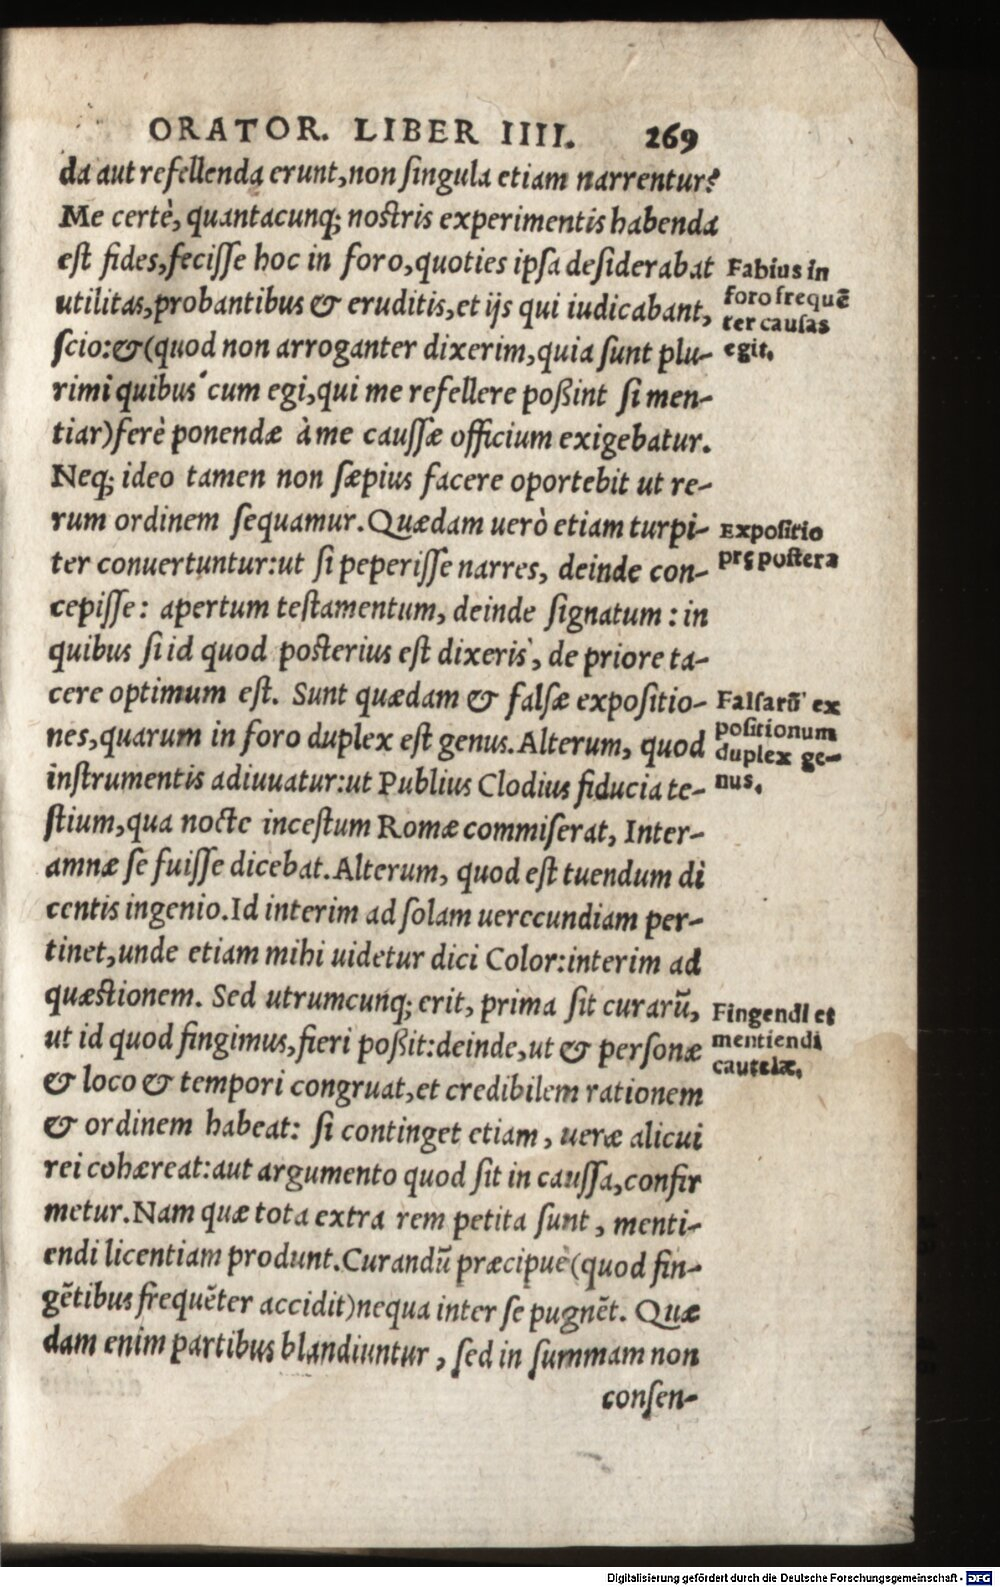 ORATOR. LIBER IIII. 269
da aut refellenda erunt, non ſingula etiam narrentur?
Me certè, quantacunq; noſtris experimentis habenda
eſt fides, feciſſe hoc in foro, quoties ipſa deſiderabat
utilitas, probantibus & eruditis, et ijs qui iudicabant,
ſcio: & (quod non arroganter dixerim, quia ſunt plu-
rimi quibus cum egi, qui me refellere poßint ſi men-
tiar) ferè ponendæ à me cauſſæ officium exigebatur.
Neq; ideo tamen non ſæpius facere oportebit ut re-
rum ordinem ſequamur. Quædam uerò etiam turpi-
ter conuertuntur: ut ſi peperiſſe narres, deinde con-
cepiſſe: apertum teſtamentum, deinde ſignatum: in
quibus ſi id quod poſterius eſt dixeris, de priore ta-
cere optimum eſt. Sunt quædam & falſæ expoſitio-
nes, quarum in foro duplex eſt genus. Alterum, quod
inſtrumentis adiuuatur: ut Publius Clodius fiducia te-
ſtium, qua nocte inceſtum Romæ commiſerat, Inter-
amnæ ſe fuiſſe dicebat. Alterum, quod eſt tuendum di
centis ingenio. Id interim ad ſolam uerecundiam per-
tinet, unde etiam mihi uidetur dici Color: interim ad
quæſtionem. Sed utrumcunq; erit, prima ſit curarũ,
ut id quod fingimus, fieri poßit: deinde, ut & perſonæ
& loco & tempori congruat, et credibilem rationem
& ordinem habeat: ſi continget etiam, ueræ alicui
rei cohæreat: aut argumento quod ſit in cauſſa, confir
metur. Nam quæ tota extra rem petita ſunt, menti-
endi licentiam produnt. Curandũ præcipuè (quod fin-
gẽtibus frequẽter accidit) nequa inter ſe pugnẽt. Quæ
dam enim partibus blandiuntur, ſed in ſummam non
conſen-
Fabius in
foro frequẽ
ter cauſas
egit.
Expoſitio
prępoſtera
Falſarũ ex
poſitionum
duplex ge-
nus.
Fingendi et
mentiendi
cautelæ.
Digitalisierung gefördert durch die Deutsche Forschungsgemeinschaft - DFG